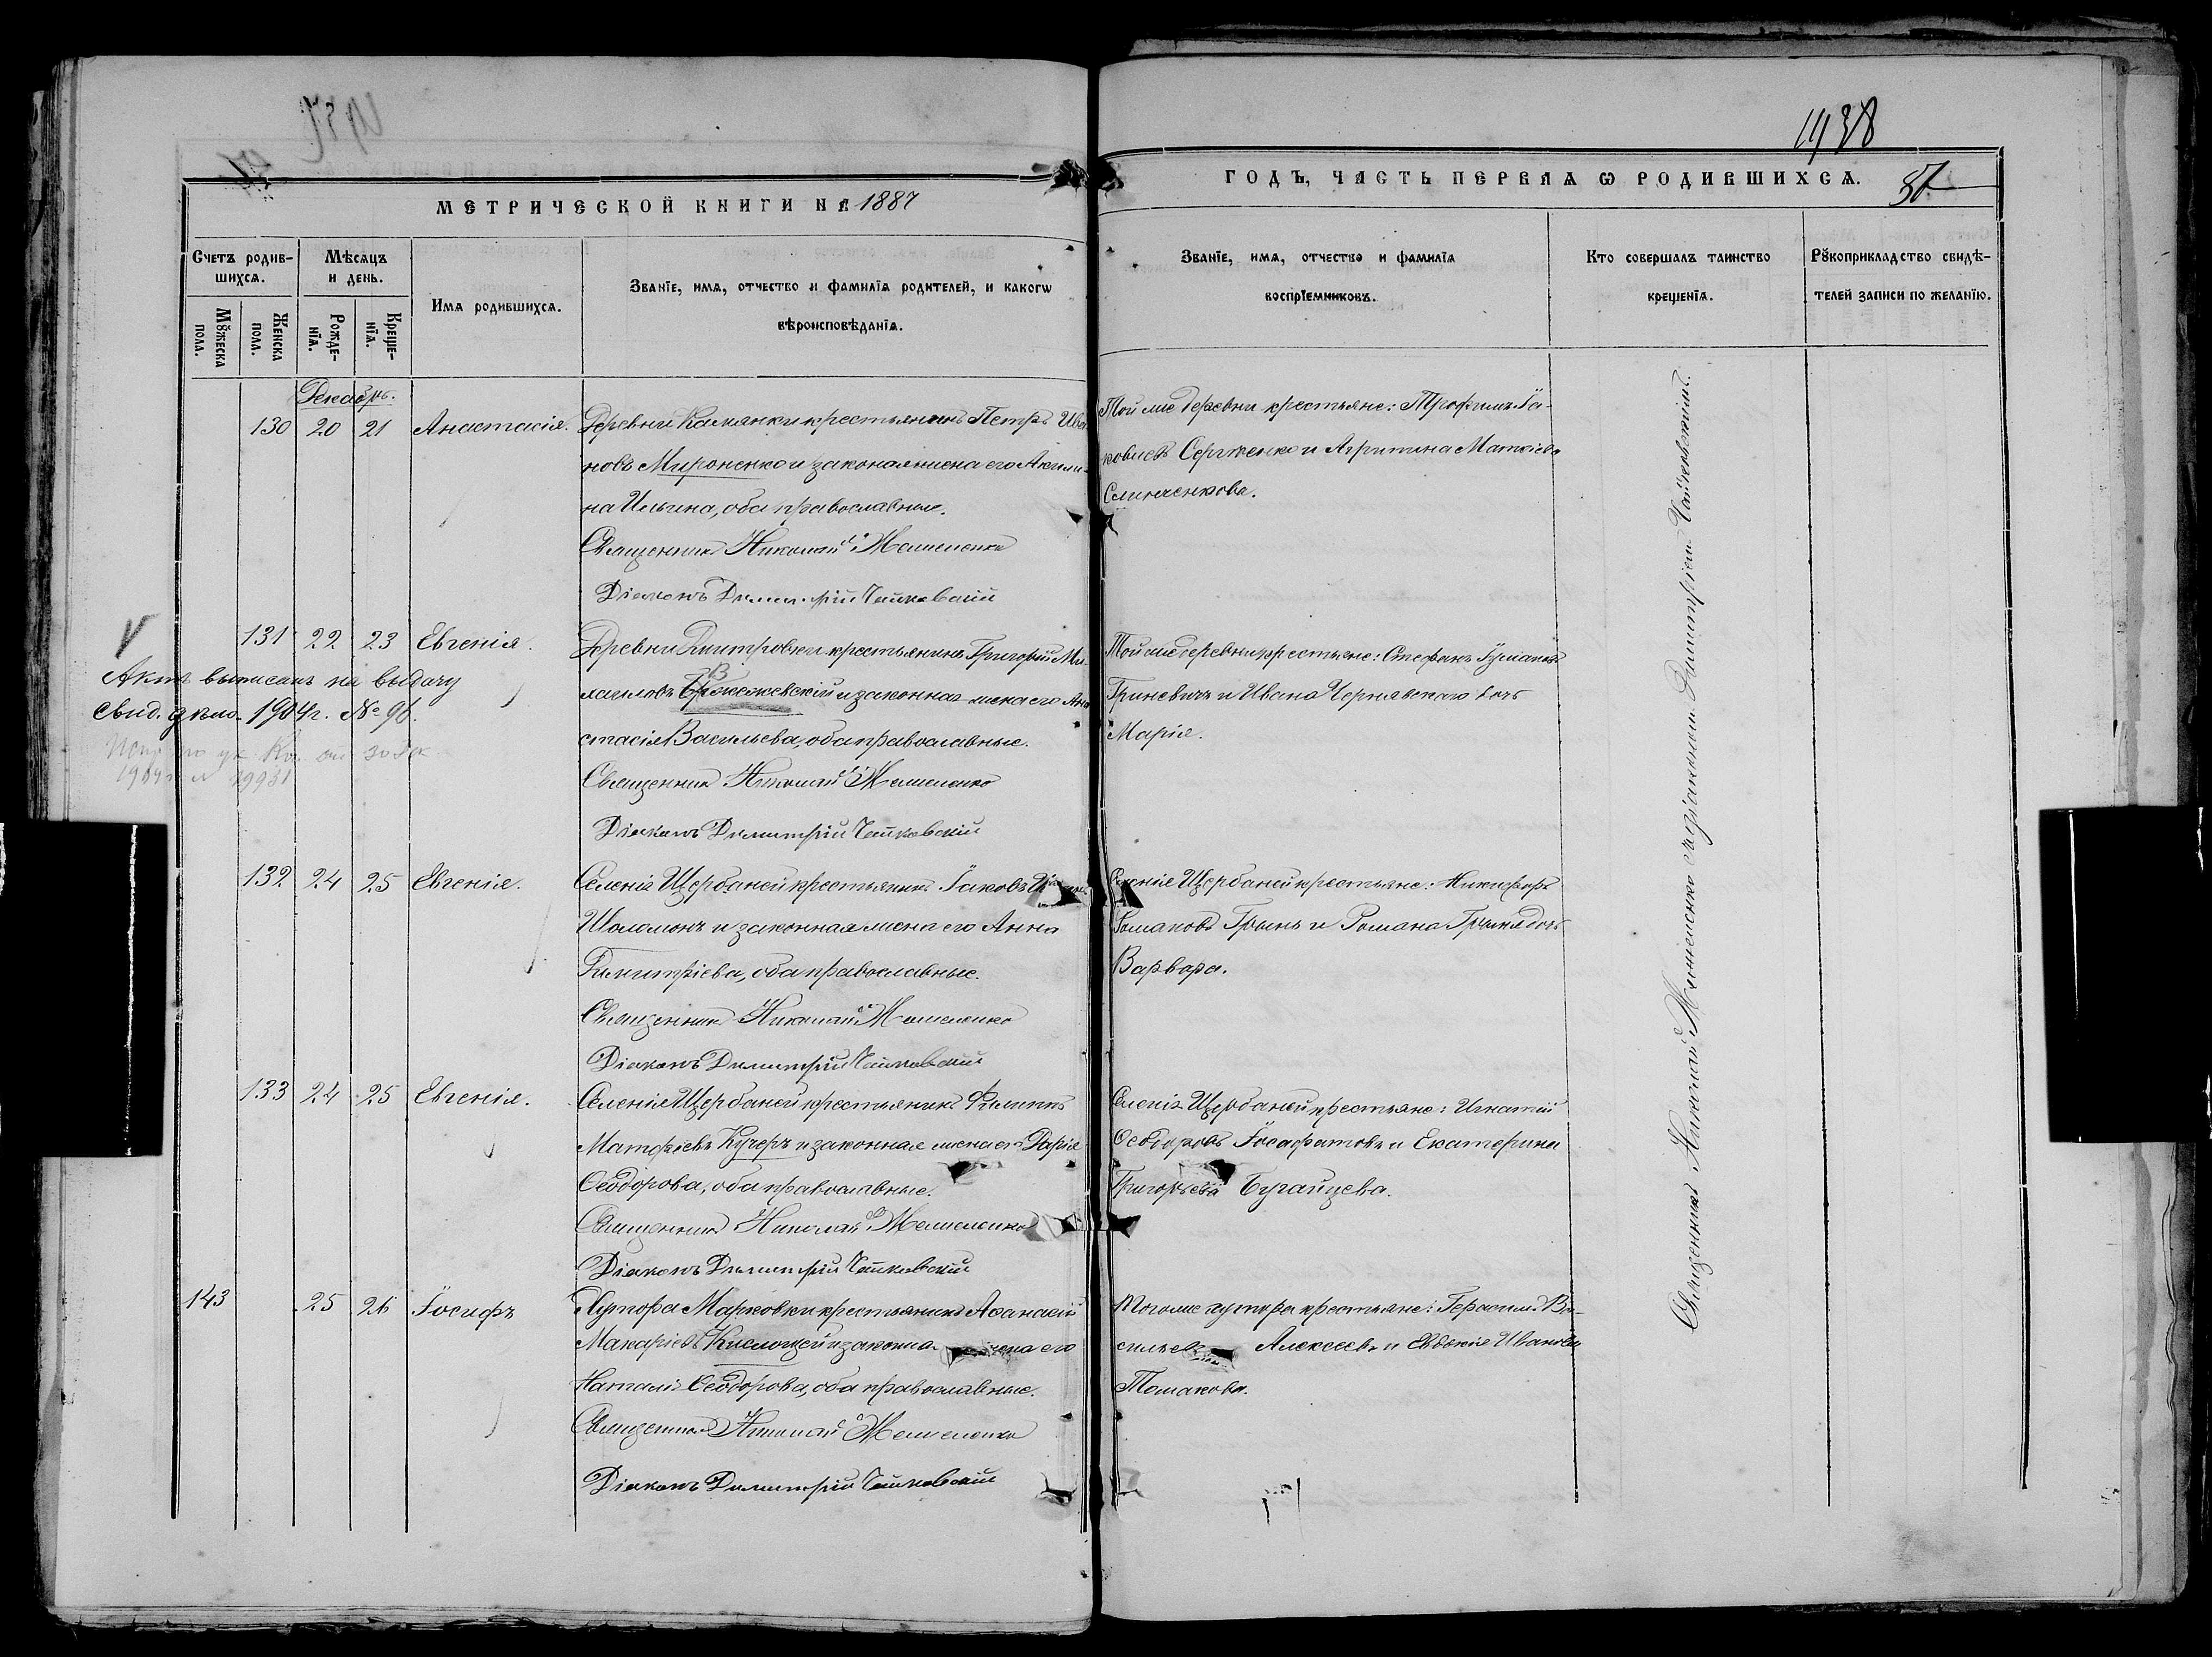 1938
МЕТРИЧЕСКОЙ КНИГИ НА 1887
ГОДЪ, ЧАСТЬ ПЕРВАЯ Ѡ РОДИВШИХСѦ.
Счетъ родив-
шихсѧ.
Мꙋжеска
пола.
Женска
пола.
Мѣсѧцъ
и день.
Рожде-
нїѧ.
Креще-
нїѧ.
Имѧ родившихсѧ.
Званїе, имѧ, отчество и фамилїѧ родителей, и какогѡ
вѣроисповѣданїѧ.
Званїе, имѧ, отчество и фамилїѧ
воспрїемниковъ.
Кто совершалъ таинство
крещенїѧ.
Рꙋкоприкладство свидѣ-
телей записи по желанїю.
Декабрь.
130 20 21 Анастасія.
Деревни Камянки крестьянинъ Петръ Ива-
новъ Мироненко и законая жена его Акили-
на Ильина, оба православные.
Священникъ Николай
Діаконъ Димитрій Чайковскій
Той же деревни крестьяне: Трофимъ Іа-
ковлевъ Сергіенко и Агрипина Матѳіева
131 22 23 Евгенія.
Деревни Дмитровки крестьянинъ Григорій Ми-
хаиловъ и законная жена его Ана-
стасія Васильева, оба православные.
Священникъ Николай
Діаконъ Димитрій Чайковскій
Той же деревни крестьяне: Стефанъ
Гриневичъ и Ивана Чернявскаго дочь
Марія.
Актъ выписанъ на выдачу
свид. 1904г. № 96.
132 24 25 Евгенія.
Селенія Щербаней крестьянинъ Іаковъ
Шоломонъ и законная жена его Анна
Димитріева, оба православные.
Священникъ Николай
Діаконъ Димитрій Чайковскій
Селенія Щербаней крестьяне: Никифоръ
Романовъ и Романа дочь
Варвара.
133 24 25 Евгенія.
Селенія Щербаней крестьянинъ Филиппъ
Матфіевъ Кучеръ и законная жена его Дарія
Ѳеодорова, оба православные.
Священникъ Николай
Діаконъ Димитрій Чайковскій
Селенія Щербаней крестьяне: Игнатій
Ѳеодоровъ Іосафатовъ и Екатерина
Григорьева Бугайцева.
143 25 26 Іосифъ
Хутора Марковки крестьянинъ Аѳанасій
Макаріевъ и законная жена его
Наталія Ѳеодорова, оба православные.
Священникъ Николай
Діаконъ Димитрій Чайковскій
Того же хутора крестьяне: Герасимъ Ва-
сильевъ Алексеевъ и Евдокія Иванова
Томакова.
Священникъ Николай съ діакономъ Димитріемъ Чайковскимъ.